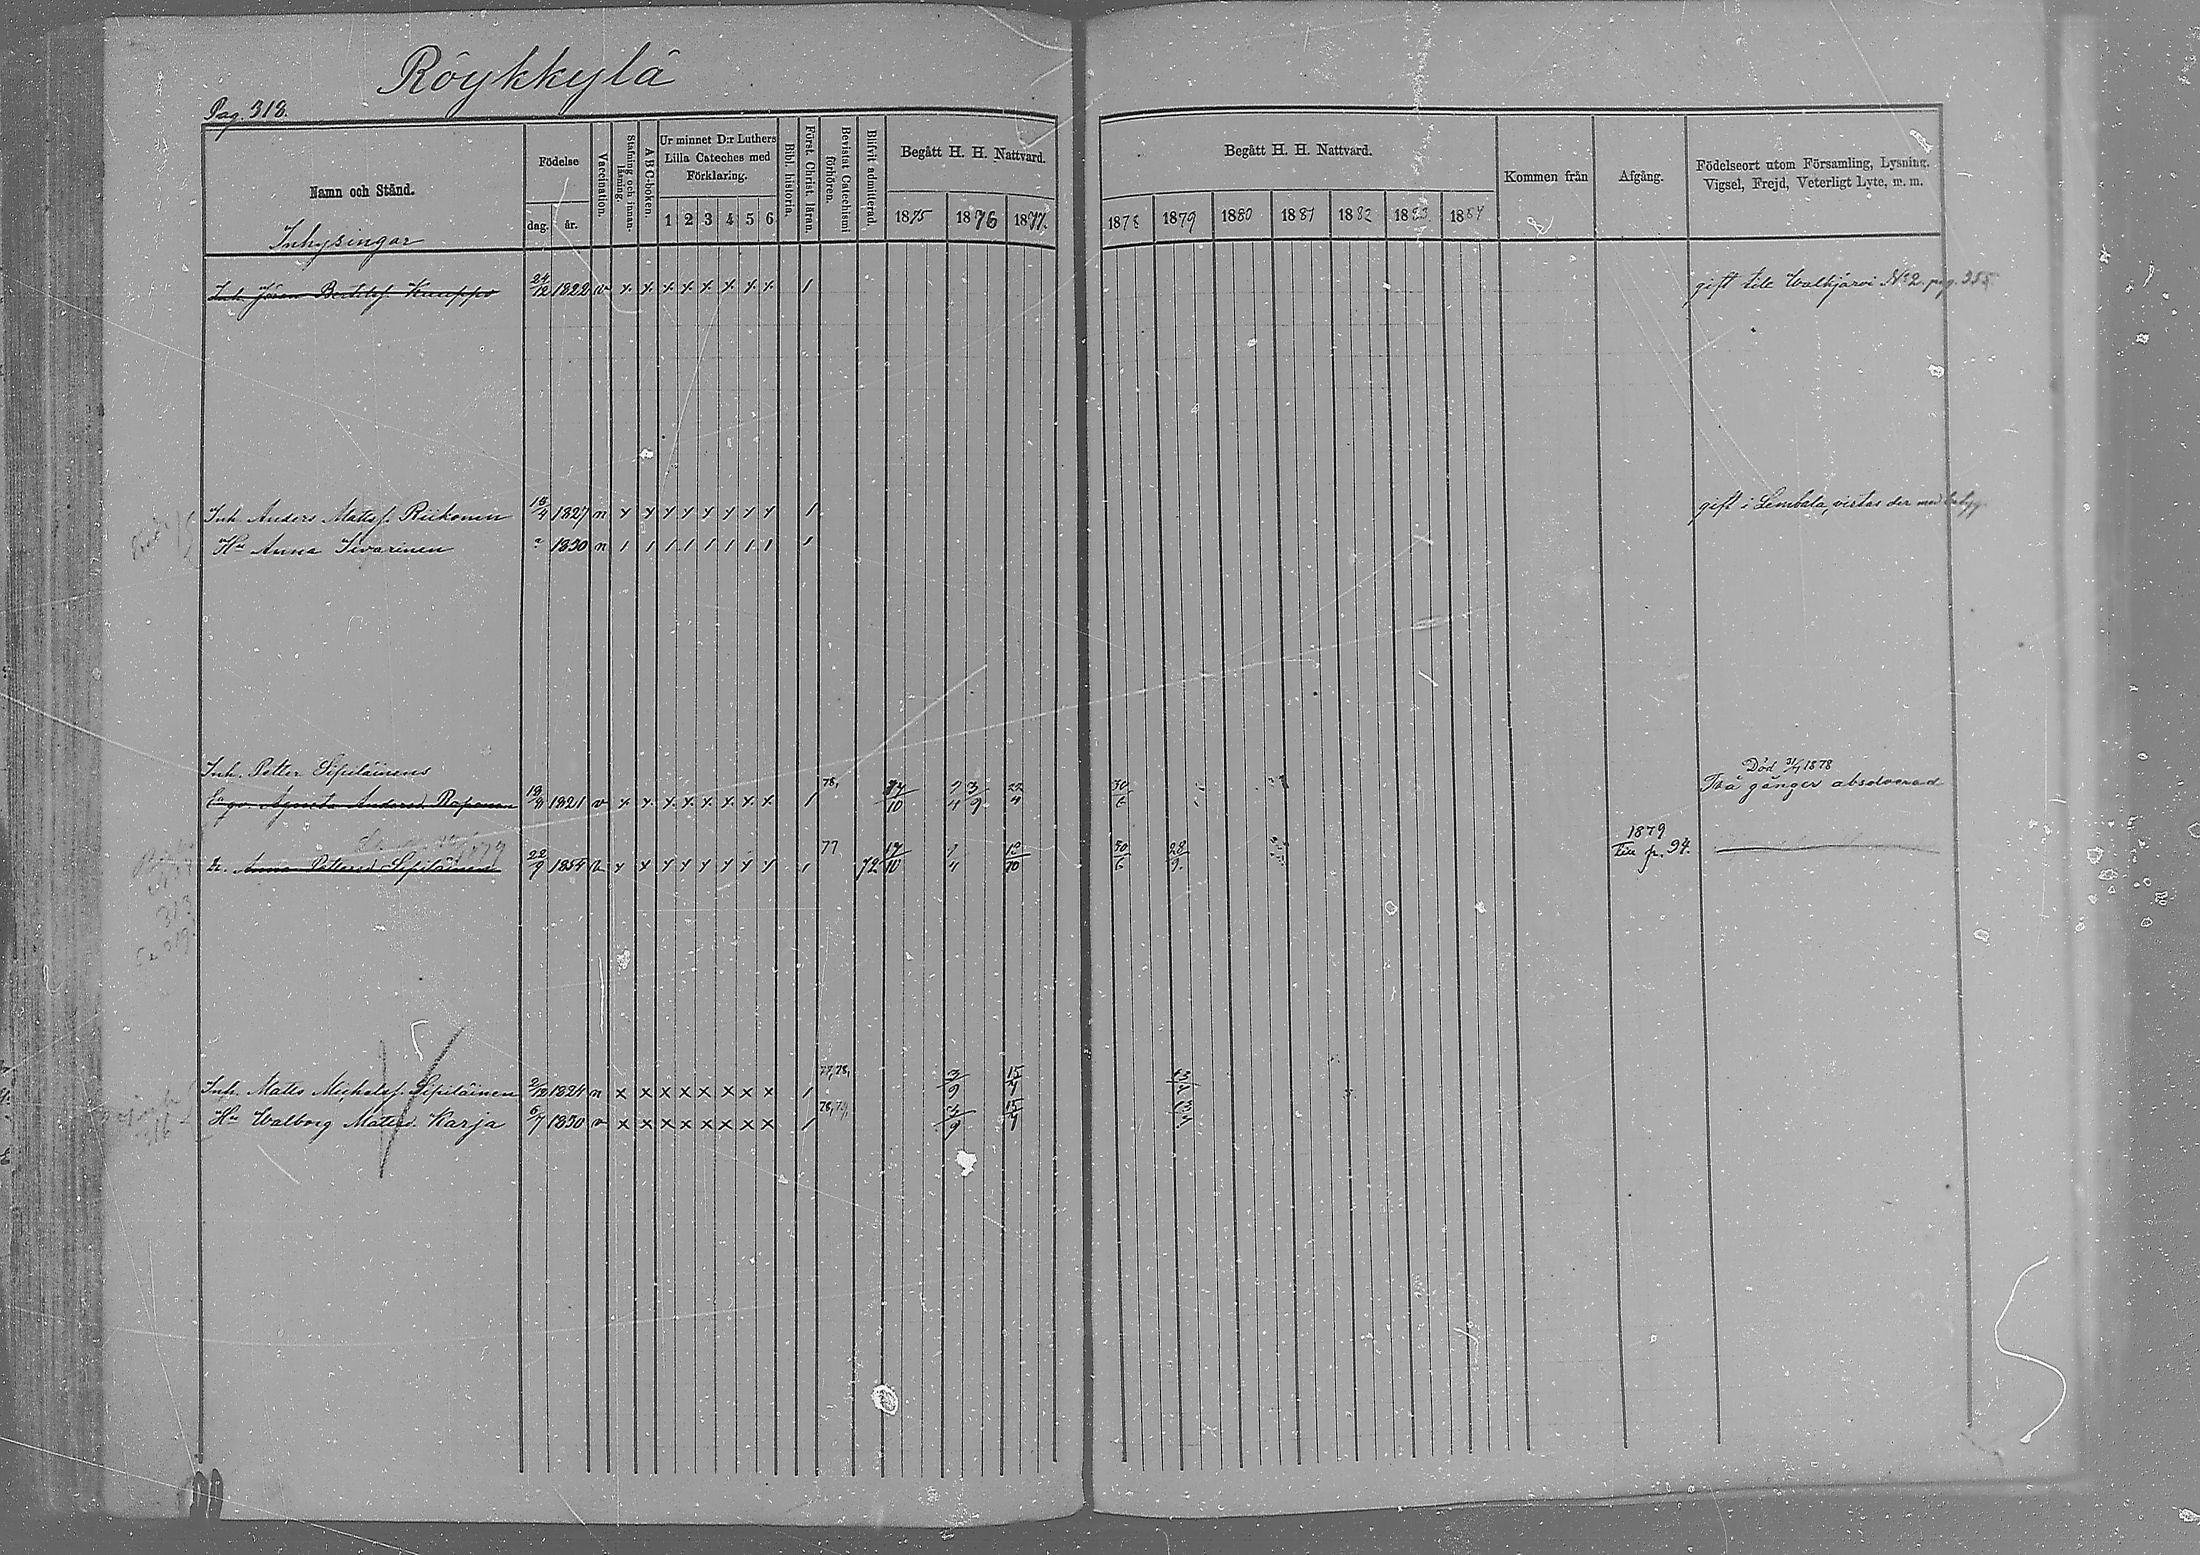 Röykkylä
Pag. 313.
Namn och Stånd.
Inhysingar
Födelse
dag. år.
Vaccination.
Stafning och innanläsning.
A B C-boken.
Ur minnet D:r Luthers Lilla Cateches med Förklaring.
1 2 3 4 5 6
Bibl. historia.
Först. Christ. läran.
Bevistat Catechismi förhören.
Blifvit admitterad.
Begått H. H. Nattvard.
1875 1876 1877.
Begått H. H. Nattvard.
1878 1879 1880 1881 1882 1883 1884
Kommen från
Afgång.
Födelseort utom Församling, Lysning. Vigsel, Frejd, Veterligt Lyte, m. m.
Inh. Jöran Bertilsf. Kuuppo 24/12 1822 v x x x x x x x x 1 gift till Walkjärvi No 2 pag. 355
Inh. Anders Mattsf. Riikonen 18/4 1827 n x x x x x x x x 1 gift i Lembala, vistas der med betyg
Hu Anna Sivarinen 1830 n 1 1 1 1 1 1 1 1 1
Inh. Petter Sipiläinens Död 31/7 1878
Eega Agneta Andersd. Raponen 18/8 1821 v x x x x x x x x 1 78, 17/10 22/4 30/6 Två gånger absolverad
1879
Dr. Anna Pettersd Sipiläinen 22/9 1854 v x x x x x x x x 1 77 72 17/10 30/6 28/9. Till fr. 94.
313
Inh. Matts Michelsf. Sipiläinen 2/12 1824 n x x x x x x x x 1 77, 78, 3/9 15/4
Hu Walborg Mattsd. Karja 6/7 1830 v x x x x x x x x 1 78, 79, 3/9 15/4
316